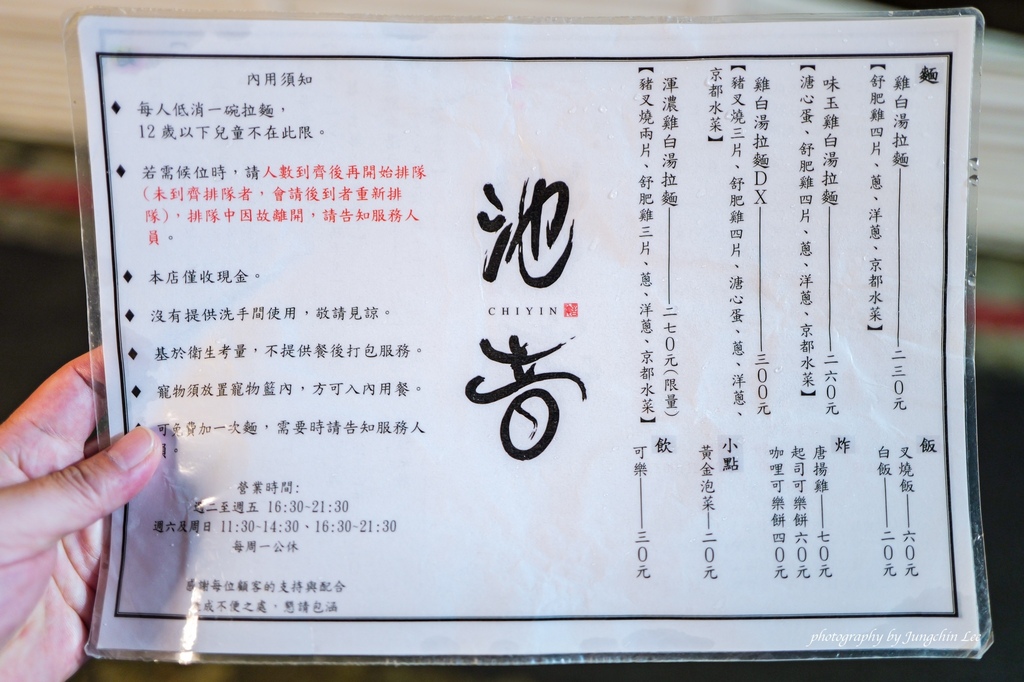 內用須知
每人低消一碗拉麵，
12歲以下兒童不在此限。
若需候位時，請人數到齊後再開始排隊
（未到齊排隊者，會請後到者重新排
隊），排隊中因故離開，請告知服務人
員。
本店僅收現金。
沒有提供洗手間使用，敬請見諒。
基於衛生考量，不提供餐後打包服務。
寵物須放置寵物籃內，方可入內用餐。
可免費加一次麵，需要時請告知服務人
營業時間:
週二至週五 16:30~21:30
週六及周日 11:30~14:30、16:30~21:30
每周一公休
感謝每位顧客的支持與配合
成不便之處，懇請包涵
池
CHIYIN
音
麵
雞白湯拉麵 二三0元
【舒肥雞四片、蔥、洋蔥、京都水菜】
味玉雞白湯拉麵 二六0元
【溏心蛋、舒肥雞四片、蔥、洋蔥、京都水菜】
雞白湯拉麵DX 三00元
【豬叉燒三片、舒肥雞四片、溏心蛋、蔥、洋蔥、
京都水菜】
渾濃雞白湯拉麵 二七0元(限量)
【豬叉燒兩片、舒肥雞三片、蔥、洋蔥、京都水菜】
飯
叉燒飯 六0元
白飯 二0元
炸
唐揚雞 七0元
起司可樂餅六0元
咖哩可樂餅四0元
小點
黃金泡菜 二0元
飲
可樂 三0元
photography by Jungchin Lee